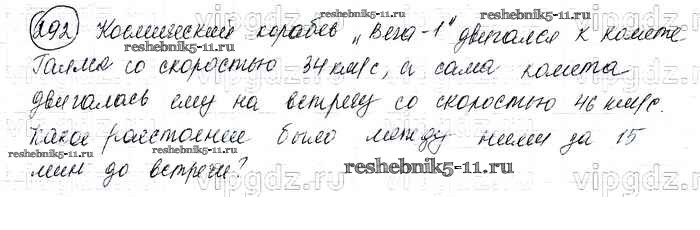 292 Космический корабль „Вега-1" двигался к комете
reshebnik5-11.ru reshebnik5-11.ru
Галлея со скоростью 34 км/с, а сама комета
двигалась ему на встречу со скоростью 46 км/с.
Какое расстояние было между ними за 15
reshebnik5-11.ru
мин до встречи? reshebnik5-11.ru
vipgdz.ru vipgdz.ru vipgdz.ru